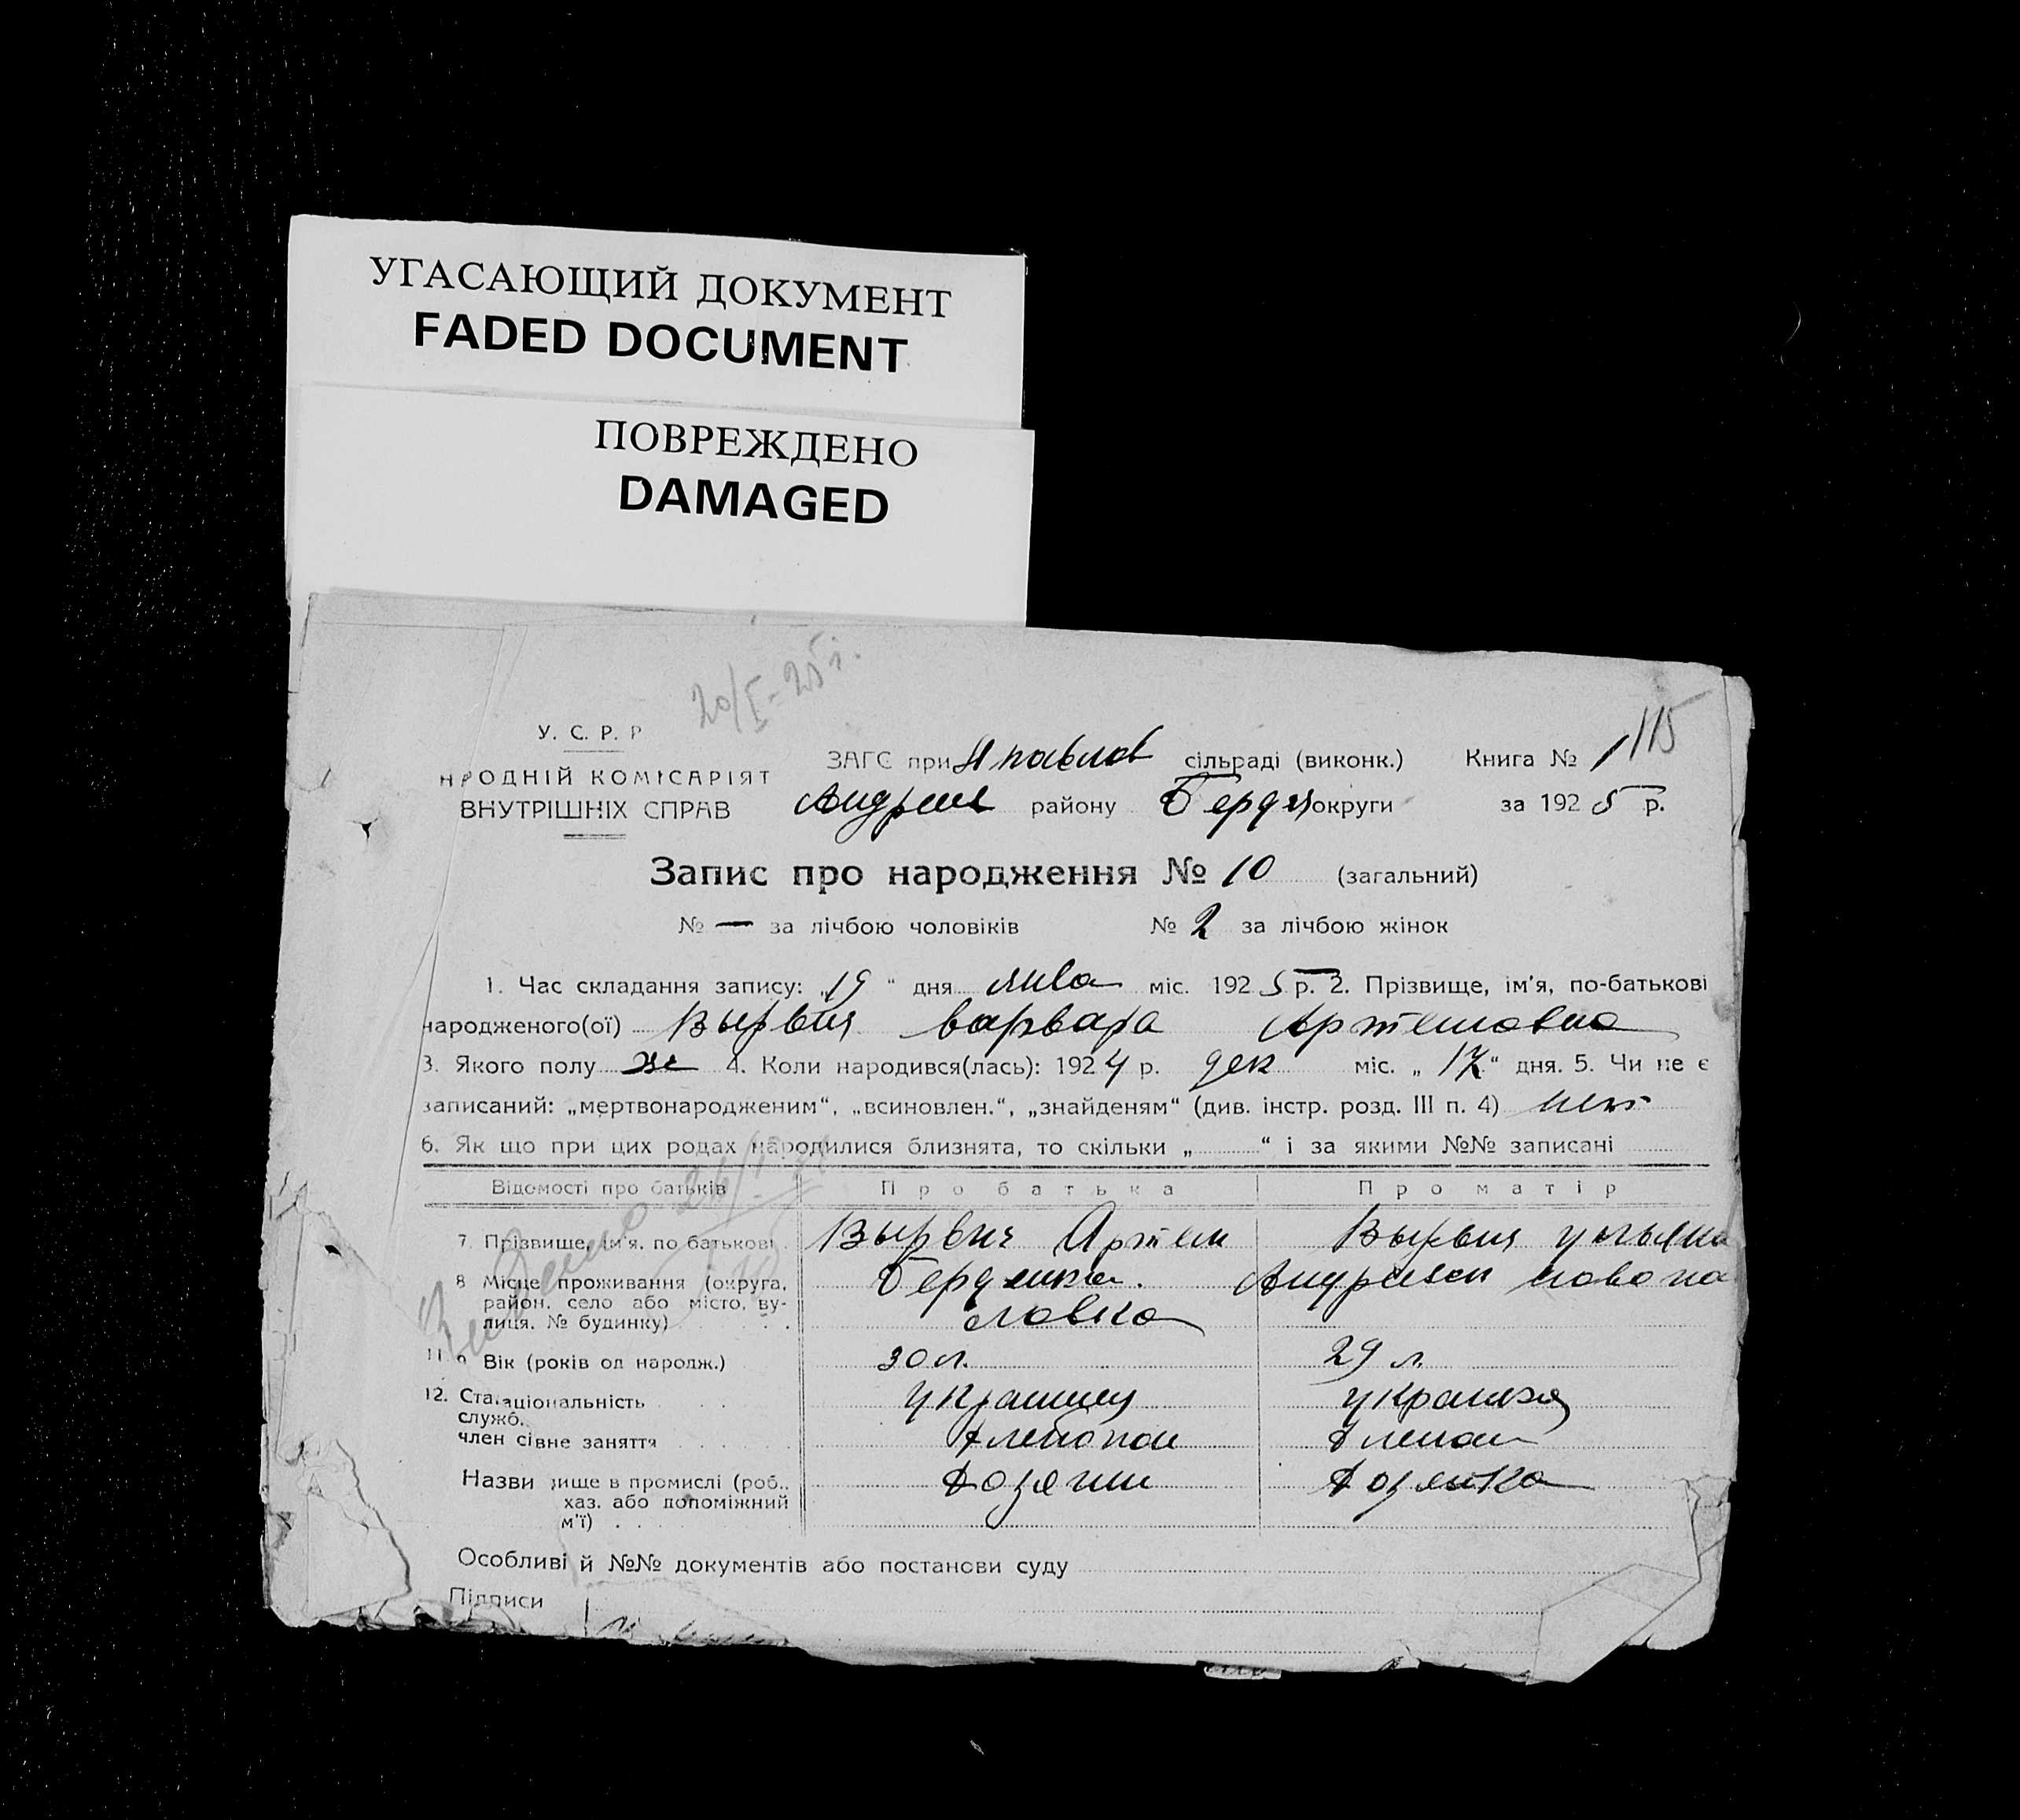 УГАСАЮЩИЙ ДОКУМЕНТ
FADED DOCUMENT
ПОВРЕЖДЕНО
DAMAGED
20/I-25 г.
115
У. С. Р. Р
НРОДНІЙ КОМІСАРІЯТ
ВНУТРІШНІХ СПРАВ
ЗАГС при Н павлов сільраді (виконк.) Книга № 1
Андреев району Бердян округи за 1925 р.
Запис про народження № 10 (загальний)
№ — за лічбою чоловіків № 2 за лічбою жінок
1. Час складання запису: „19" дня янва міс. 1925 р. 2. Прізвище, ім'я, по-батькові
народженого(ої) Вырвич варвара Артемовна
3. Якого полу же 4. Коли народився(лась): 1924 р. дек міс. „17" дня. 5. Чи не є
записаний: „мертвонародженим", „всиновлен.", „знайденям" (див. інстр. розд. III п. 4) нет
6. Як що при цих родах народилися близнята, то скільки „ " і за якими №№ записані
Відомості про батьків Про батька Про матір
7. Прізвище, ім'я, по батькові Вырвич Артем Вырвич ульяна
8 Місце проживання (округа, район, село або місто, вулиця, № будинку) Бердянка. Андреевск новопа
ловка
11. 9 Вік (років од народж.) 30 л. 29 л.
12. Ста.аціональність украинец украинка
служб.
член сівне заняття
Назви ище в промислі (роб., хозяин хозяйка
хаз. або допоміжний
м'ї)
Особливі й №№ документів або постанови суду
Підписи